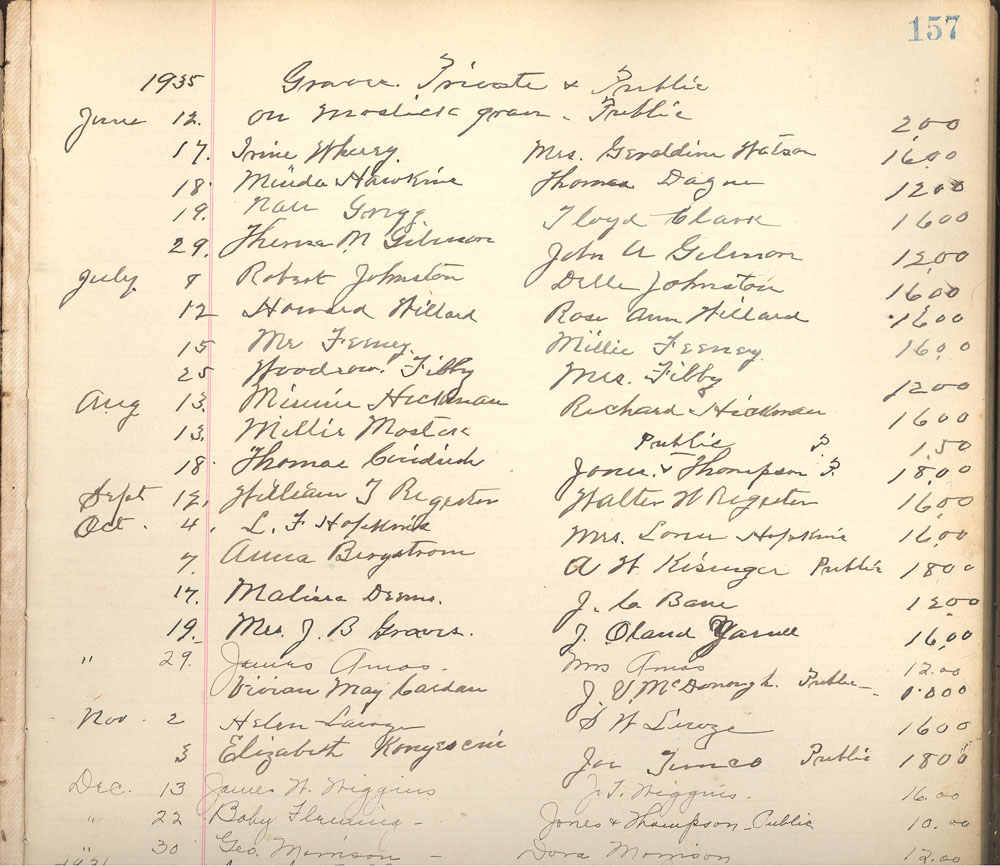 157
1935 Graves. Private & Public
June 12. on Mostick grave - Public 2.00
17. Irine Mrs. Geraldine Watson 16.00
18. Minda Hawkins Thomas 12.00
19. Grigg Floyd Clark 16.00
29. Theresa M Gilmon John Gilmon 12.00
July 8 Robert Johnston Della Johnston 16.00
12 Howard Willard Rose Ann Willard 16.00
15 Mr Feeney. Millie Feeney. 16.00
25 Woodrow. Fibby Mrs. Fibby 12.00
Aug 13. Minnie Hickman Richard Hickman 16.00
13. Millie Mostick Public P 1.50
18. Thomas Jones. & Thompson P 18.00
Sept 12. William T Register Walter W Register 16.00
Oct. 4. L. F Hopkins Mrs. Hopkins 16.00
7. Anna Bergstrom A W Kisinger Public 18.00
17. Malissa Deems. J. La Barr 12.00
19. Mrs. J. B Graves. J. Oland 16.00
" 29. James Amos. Mrs Amos 12.00
Vivian May J. V. McDonough. Public -
Nov. 2 Helen S W 16.00
3 Elizabeth Joe Public 18.00
Dec. 13 James W. Wiggins J. T. Wiggins. 16.00
" 22 Baby Fleming - Jones & Thompson - Public 10.00
" 30 Geo. Morrison - Dora Morrison 12.00